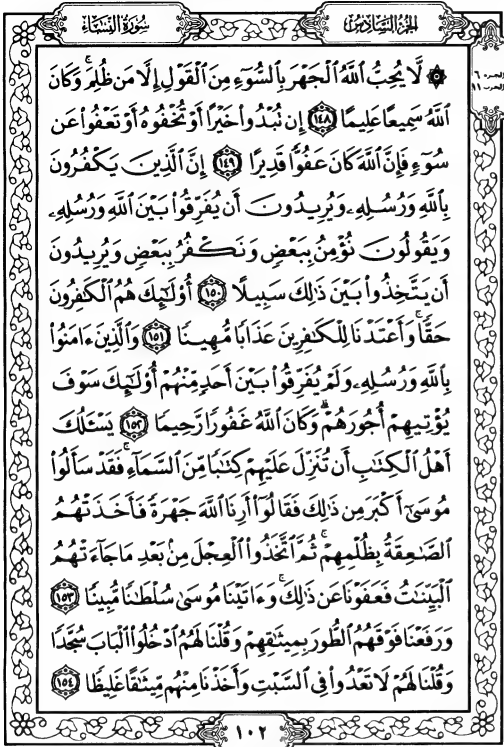 سُورَةُ النِّسَاءِ
الجُزْءُ السَّادِسُ
۞ لَّا يُحِبُّ ٱللَّهُ ٱلْجَهْرَ بِٱلسُّوٓءِ مِنَ ٱلْقَوْلِ إِلَّا مَن ظُلِمَ ۚ وَكَانَ
ٱللَّهُ سَمِيعًا عَلِيمًا ١٤٨ إِن تُبْدُوا۟ خَيْرًا أَوْ تُخْفُوهُ أَوْ تَعْفُوا۟ عَن
سُوٓءٍ فَإِنَّ ٱللَّهَ كَانَ عَفُوًّا قَدِيرًا ١٤٩ إِنَّ ٱلَّذِينَ يَكْفُرُونَ
بِٱللَّهِ وَرُسُلِهِۦ وَيُرِيدُونَ أَن يُفَرِّقُوا۟ بَيْنَ ٱللَّهِ وَرُسُلِهِۦ
وَيَقُولُونَ نُؤْمِنُ بِبَعْضٍ وَنَكْفُرُ بِبَعْضٍ وَيُرِيدُونَ
أَن يَتَّخِذُوا۟ بَيْنَ ذَٰلِكَ سَبِيلًا ١٥٠ أُو۟لَٰٓئِكَ هُمُ ٱلْكَٰفِرُونَ
حَقًّا ۚ وَأَعْتَدْنَا لِلْكَٰفِرِينَ عَذَابًا مُّهِينًا ١٥١ وَٱلَّذِينَ ءَامَنُوا۟
بِٱللَّهِ وَرُسُلِهِۦ وَلَمْ يُفَرِّقُوا۟ بَيْنَ أَحَدٍ مِّنْهُمْ أُو۟لَٰٓئِكَ سَوْفَ
يُؤْتِيهِمْ أُجُورَهُمْ ۗ وَكَانَ ٱللَّهُ غَفُورًا رَّحِيمًا ١٥٢ يَسْـَٔلُكَ
أَهْلُ ٱلْكِتَٰبِ أَن تُنَزِّلَ عَلَيْهِمْ كِتَٰبًا مِّنَ ٱلسَّمَآءِ ۚ فَقَدْ سَأَلُوا۟
مُوسَىٰٓ أَكْبَرَ مِن ذَٰلِكَ فَقَالُوٓا۟ أَرِنَا ٱللَّهَ جَهْرَةً فَأَخَذَتْهُمُ
ٱلصَّٰعِقَةُ بِظُلْمِهِمْ ۚ ثُمَّ ٱتَّخَذُوا۟ ٱلْعِجْلَ مِنۢ بَعْدِ مَا جَآءَتْهُمُ
ٱلْبَيِّنَٰتُ فَعَفَوْنَا عَن ذَٰلِكَ ۚ وَءَاتَيْنَا مُوسَىٰ سُلْطَٰنًا مُّبِينًا ١٥٣
وَرَفَعْنَا فَوْقَهُمُ ٱلطُّورَ بِمِيثَٰقِهِمْ وَقُلْنَا لَهُمُ ٱدْخُلُوا۟ ٱلْبَابَ سُجَّدًا
وَقُلْنَا لَهُمْ لَا تَعْدُوا۟ فِى ٱلسَّبْتِ وَأَخَذْنَا مِنْهُم مِّيثَٰقًا غَلِيظًا ١٥٤
١٠٢